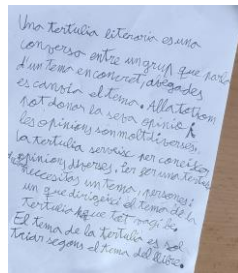 Una tertulia literaria es una
conversa entre un grup que parla
d'un tema en concret, abegades
es canvia el tema. Alla tothom
pot donar la seva opinió i
les opinions son molt diverses.
la tertulia serveix per coneixer
opinions diverses, per fer una tertulia
necessitas un tema, persones i
un que dirigeixi el tema de la
tertulia que tot vagi be.
El tema de la tertulia es sol
triar segons el tema del llibre.